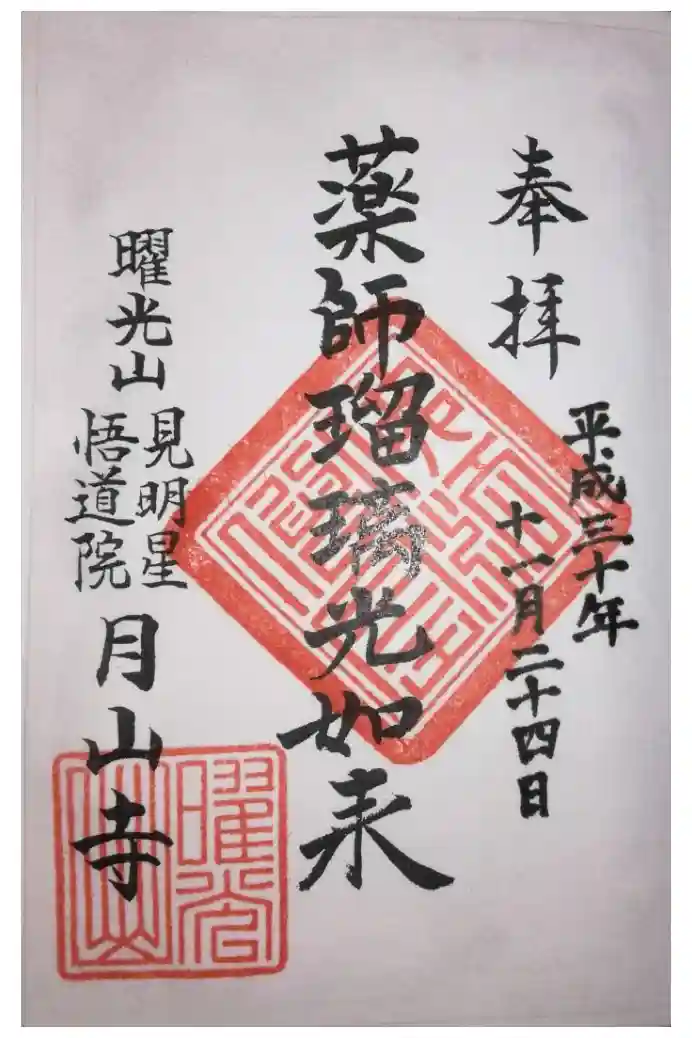 奉拝
平成三十年
十一月二十四日
薬師瑠璃光如来
曜光山
見明星
悟道院
月山寺
曜光山